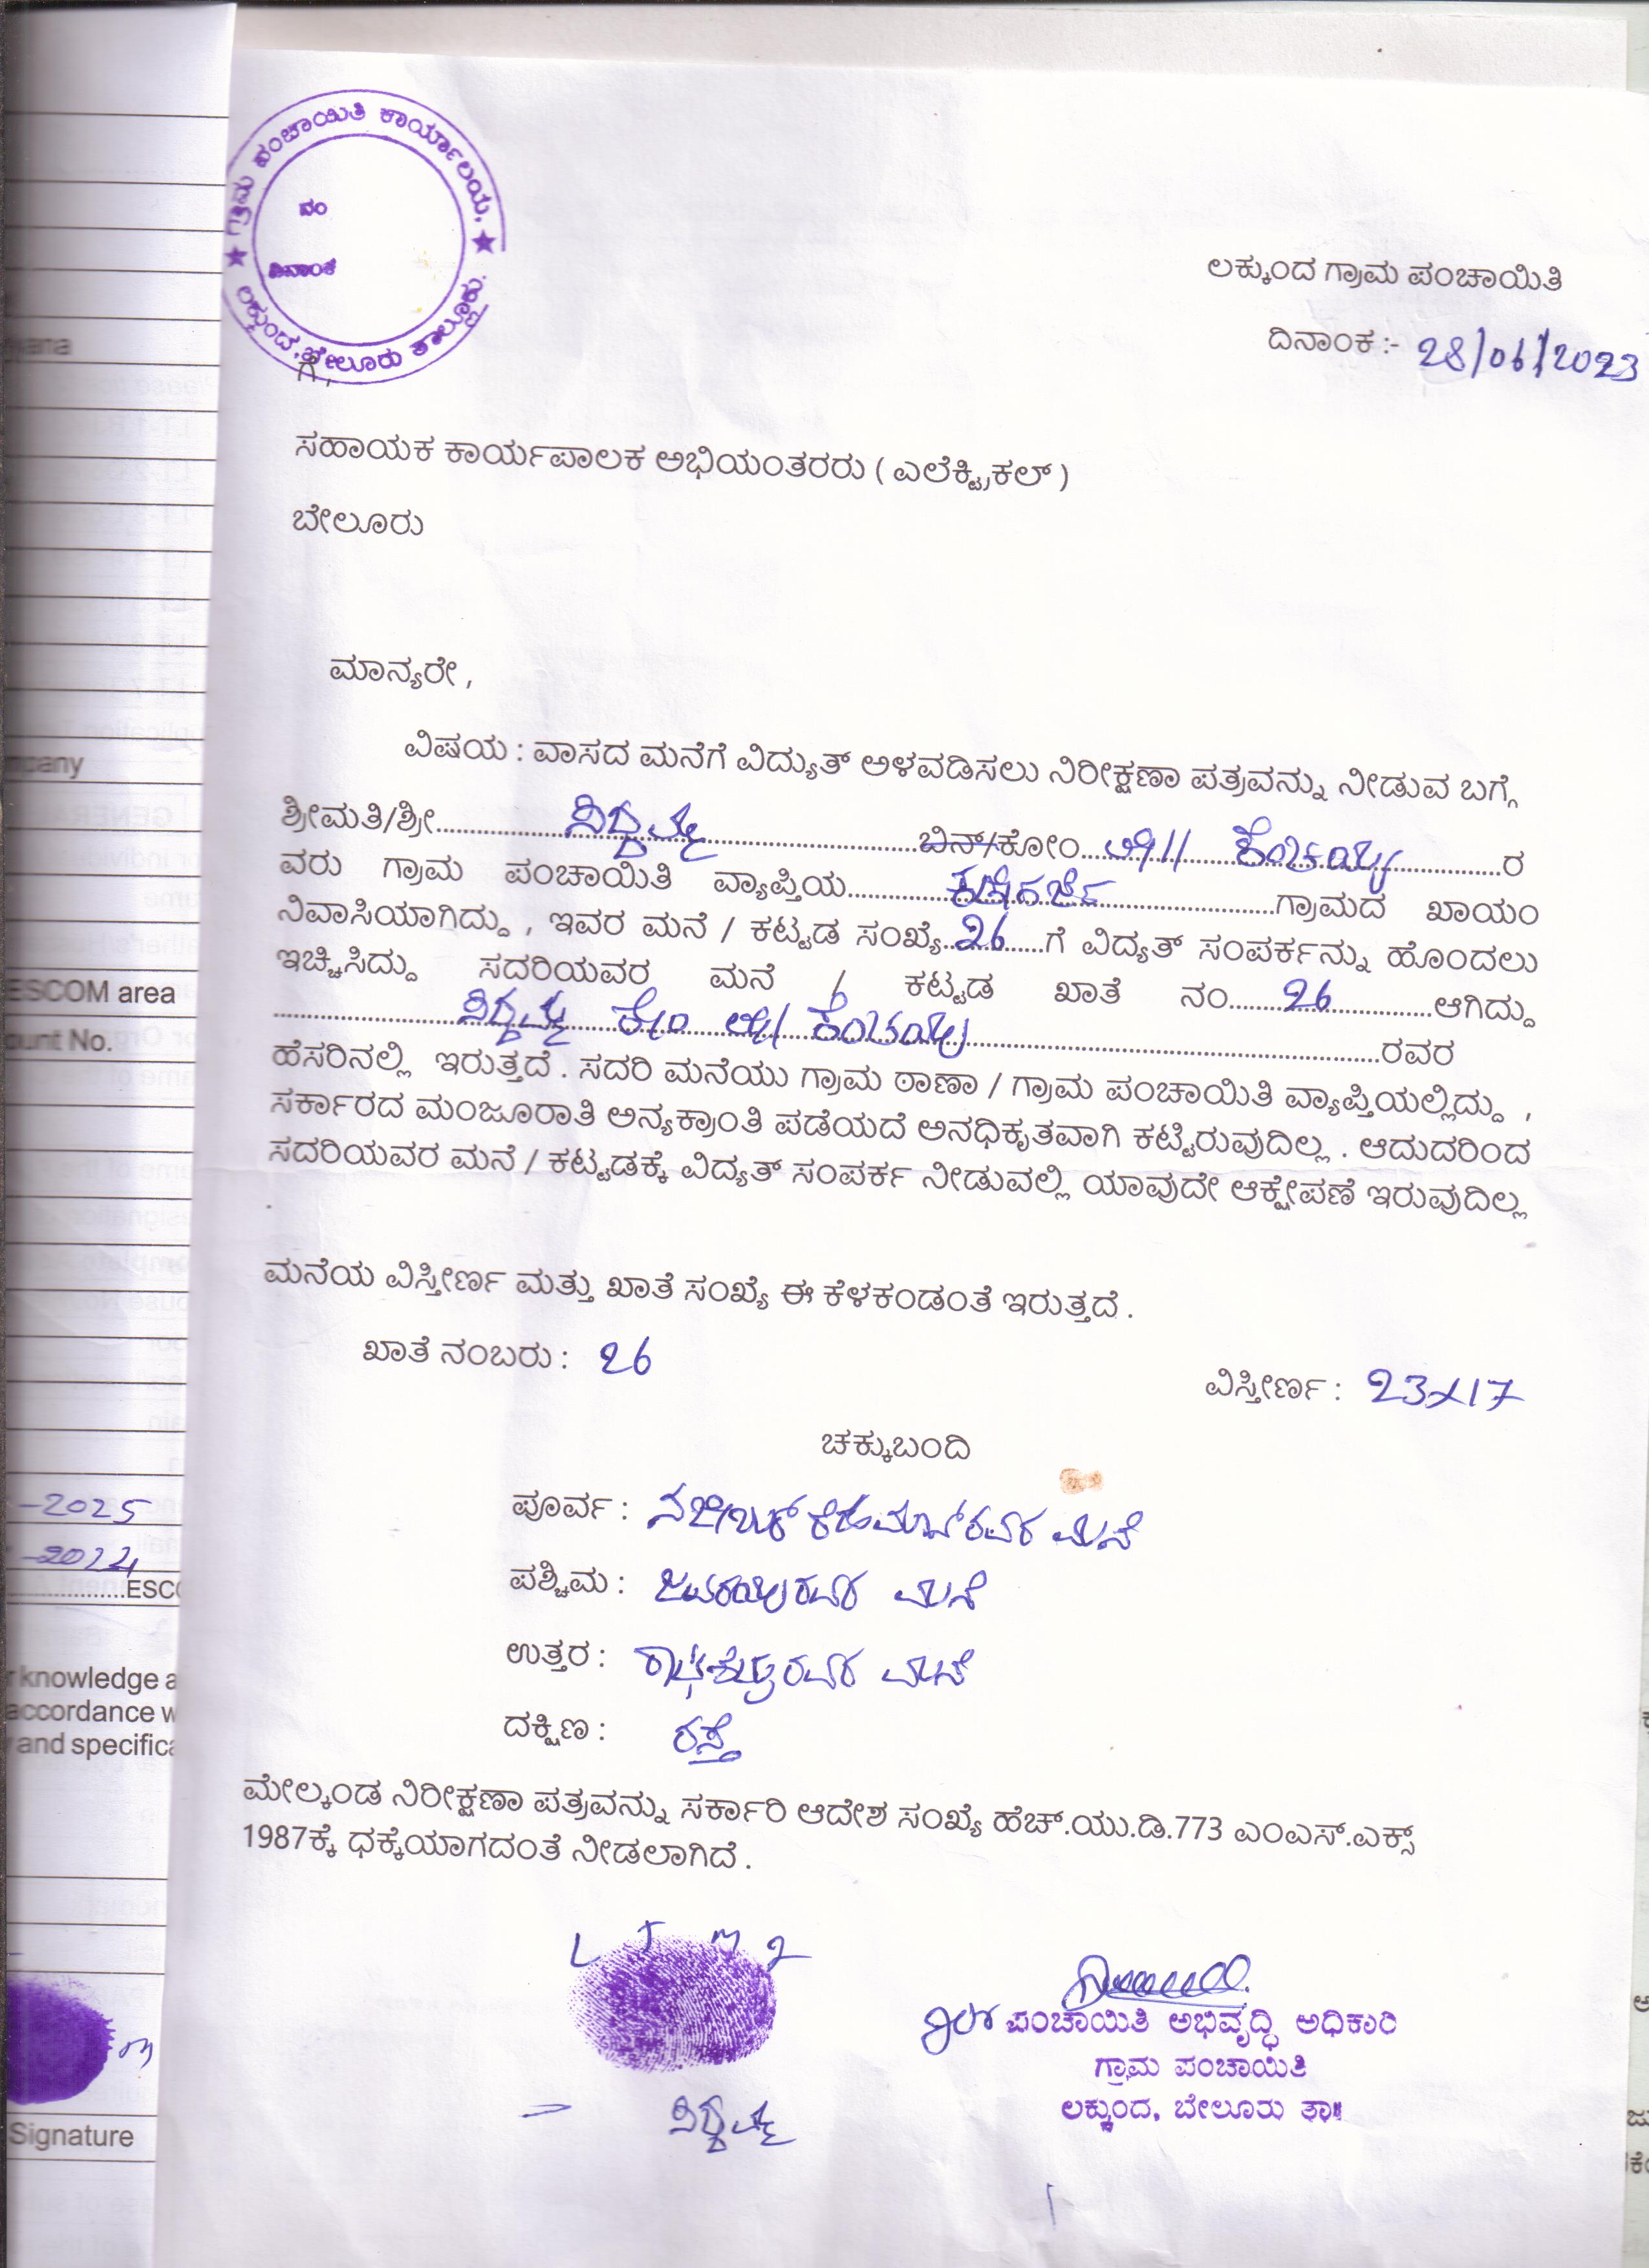 ಗ್ರಾಮ ಪಂಚಾಯಿತಿ ಕಾರ್ಯಾಲಯ,
ನಂ
ದಿನಾಂಕ
ಲಕ್ಕುಂದ, ಬೇಲೂರು ತಾಲ್ಲೂಕು.
ಲಕ್ಕುಂದ ಗ್ರಾಮ ಪಂಚಾಯಿತಿ
ದಿನಾಂಕ :- 28/06/2023
ಗೆ ,
ಸಹಾಯಕ ಕಾರ್ಯಪಾಲಕ ಅಭಿಯಂತರರು ( ಎಲೆಕ್ಟ್ರಿಕಲ್ )
ಬೇಲೂರು
ಮಾನ್ಯರೇ ,
ವಿಷಯ : ವಾಸದ ಮನೆಗೆ ವಿದ್ಯುತ್ ಅಳವಡಿಸಲು ನಿರೀಕ್ಷಣಾ ಪತ್ರವನ್ನು ನೀಡುವ ಬಗ್ಗೆ
ಶ್ರೀಮತಿ/ಶ್ರೀ.....ಸಿದ್ದಮ್ಮ.....ಬಿನ್/ಕೋಂ.....ಲೇ// ಕೆಂಚಯ್ಯ.....ರ
ವರು ಗ್ರಾಮ ಪಂಚಾಯಿತಿ ವ್ಯಾಪ್ತಿಯ..........ಗ್ರಾಮದ ಖಾಯಂ
ನಿವಾಸಿಯಾಗಿದ್ದು , ಇವರ ಮನೆ / ಕಟ್ಟಡ ಸಂಖ್ಯೆ..26.....ಗೆ ವಿದ್ಯತ್ ಸಂಪರ್ಕನ್ನು ಹೊಂದಲು
ಇಚ್ಚಿಸಿದ್ದು ಸದರಿಯವರ ಮನೆ / ಕಟ್ಟಡ ಖಾತೆ ನಂ.....26.....ಆಗಿದ್ದು
.....ಸಿದ್ದಮ್ಮ ಕೋಂ ಲೇ// ಕೆಂಚಯ್ಯ.....ರವರ
ಹೆಸರಿನಲ್ಲಿ ಇರುತ್ತದೆ . ಸದರಿ ಮನೆಯು ಗ್ರಾಮ ಠಾಣಾ / ಗ್ರಾಮ ಪಂಚಾಯಿತಿ ವ್ಯಾಪ್ತಿಯಲ್ಲಿದ್ದು ,
ಸರ್ಕಾರದ ಮಂಜೂರಾತಿ ಅನ್ಯಕ್ರಾಂತಿ ಪಡೆಯದೆ ಅನಧಿಕೃತವಾಗಿ ಕಟ್ಟಿರುವುದಿಲ್ಲ . ಆದುದರಿಂದ
ಸದರಿಯವರ ಮನೆ / ಕಟ್ಟಡಕ್ಕೆ ವಿದ್ಯತ್ ಸಂಪರ್ಕ ನೀಡುವಲ್ಲಿ ಯಾವುದೇ ಆಕ್ಷೇಪಣೆ ಇರುವುದಿಲ್ಲ
.
ಮನೆಯ ವಿಸ್ತೀರ್ಣ ಮತ್ತು ಖಾತೆ ಸಂಖ್ಯೆ ಈ ಕೆಳಕಂಡಂತೆ ಇರುತ್ತದೆ .
ಖಾತೆ ನಂಬರು : 26
ವಿಸ್ತೀರ್ಣ : 23x17
ಚಕ್ಕುಬಂದಿ
ಪೂರ್ವ : ರವರ ಮನೆ
ಪಶ್ಚಿಮ : ಜವರಯ್ಯರವರ ಮನೆ
ಉತ್ತರ : ರವರ ಮನೆ
ದಕ್ಷಿಣ : ರಸ್ತೆ
ಮೇಲ್ಕಂಡ ನಿರೀಕ್ಷಣಾ ಪತ್ರವನ್ನು ಸರ್ಕಾರಿ ಆದೇಶ ಸಂಖ್ಯೆ ಹೆಚ್.ಯು.ಡಿ.773 ಎಂಎಸ್.ಎಕ್ಸ್
1987ಕ್ಕೆ ಧಕ್ಕೆಯಾಗದಂತೆ ನೀಡಲಾಗಿದೆ .
ಪಂಚಾಯಿತಿ ಅಭಿವೃದ್ಧಿ ಅಧಿಕಾರಿ
ಗ್ರಾಮ ಪಂಚಾಯಿತಿ
ಲಕ್ಕುಂದ, ಬೇಲೂರು ತಾ॥
ಸಿದ್ದಮ್ಮ
mpany
ESCOM area
ount No.
-2025
-2024
..............ESC
knowledge a
accordance w
and specifica
Signature